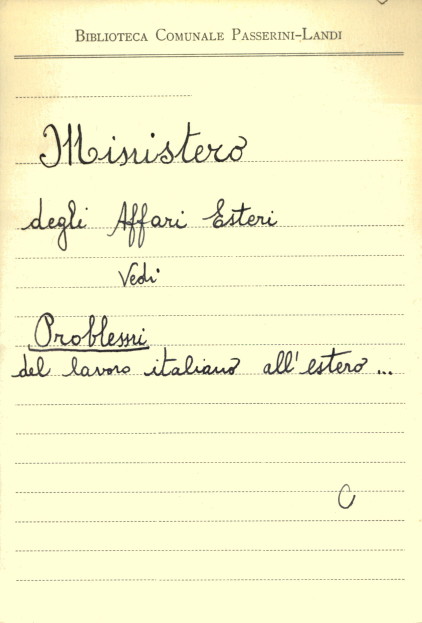 BIBLIOTECA COMUNALE PASSERINI-LANDI
Ministero
degli Affari Esteri
Vedi
Problemi
del lavoro italiano all'estero ...
C